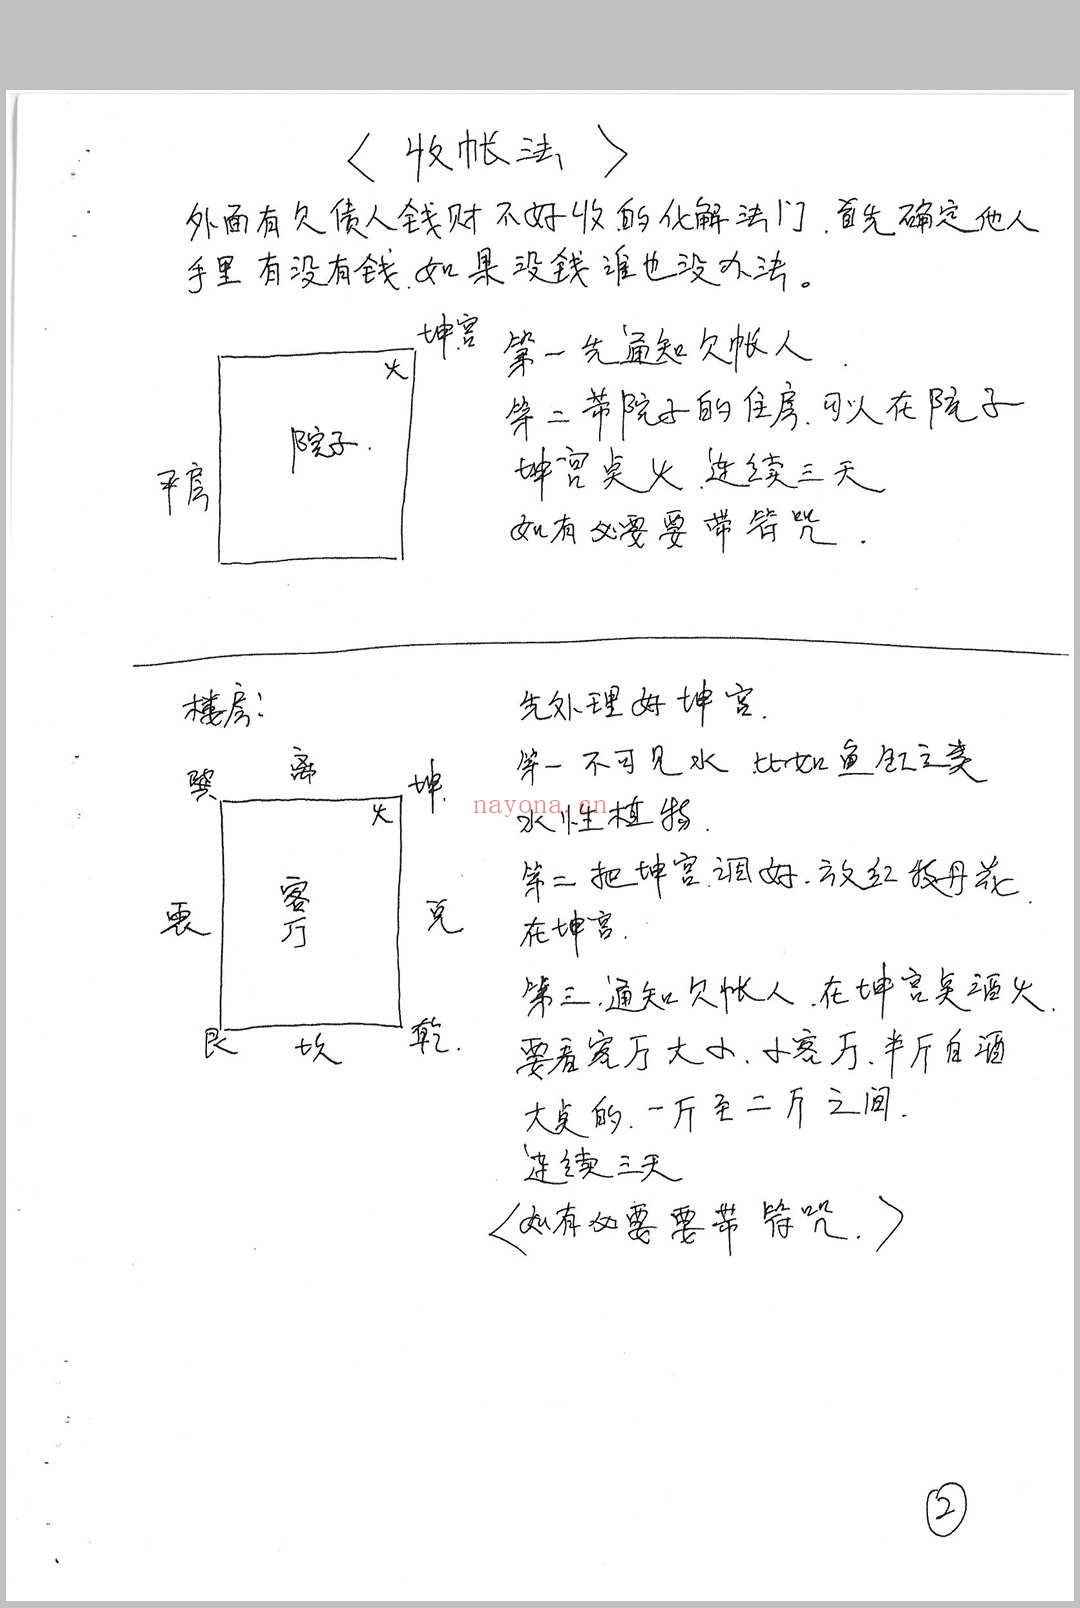 〈收帐法〉
外面有欠债人钱财不好收的化解法门.首先确定他人
手里有没有钱.如果没钱谁也没办法。
坤宫
火
院子.
平房
第一先通知欠帐人.
第二带院子的住房.可以在院子
坤宫点火.连续三天
如有必要要带符咒.
楼房:
巽 离 坤.
火
客厅
震 兑
艮 坎 乾.
先处理好坤宫.
第一不可见水.比如鱼缸之类
水性植物.
第二把坤宫.调好.放红牡丹花.
在坤宫.
第三.通知欠帐人.在坤宫点酒火.
要看客厅大小.小客厅.半斤白酒
大点的.一斤至二斤之间.
连续三天
〈如有必要要带符咒.〉
nayona.cn
2